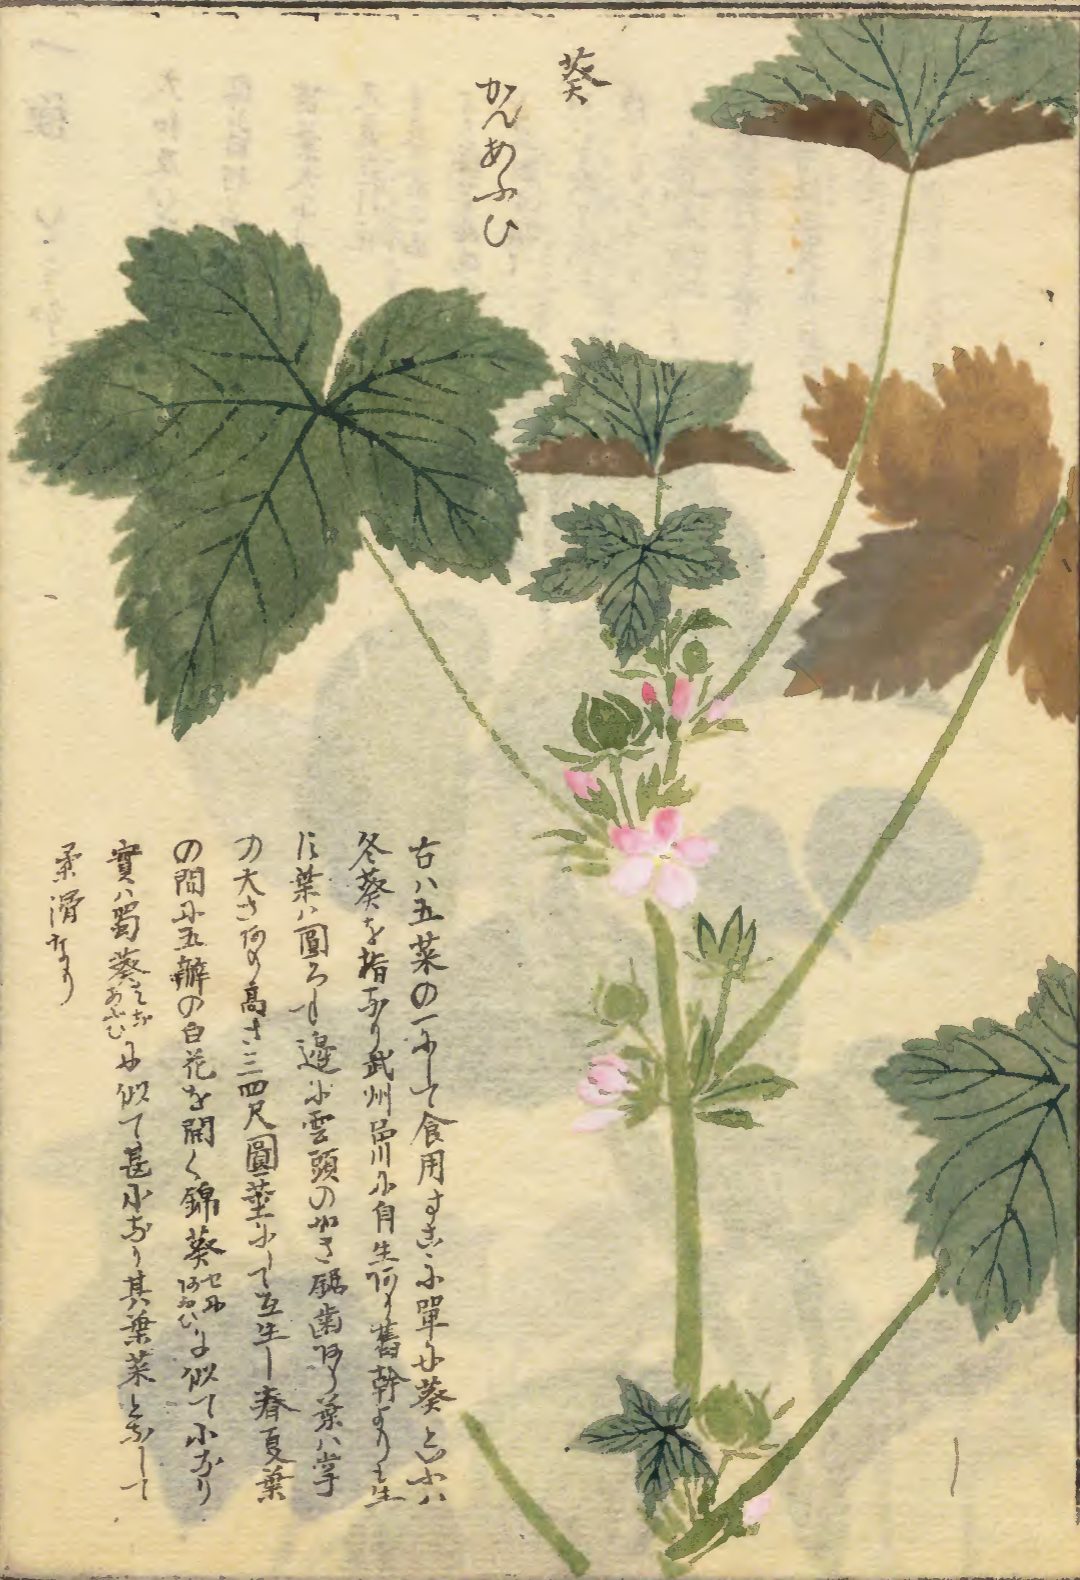 葵
かんあふひ
右ハ五菜の一にして食用すこゝに單に葵と云ハ
冬葵を指なり武州品川に自生あり舊幹より生
葉ハ圓ろし邊に雲頭の如き鋸歯あり葉ハ掌
の大さあり高さ三四尺圓莖にして互生し春夏葉
の間に五瓣の白花を開く錦葵に似て小なり
實ハ蜀葵に似て甚小なり其葉菜となして
柔滑なり